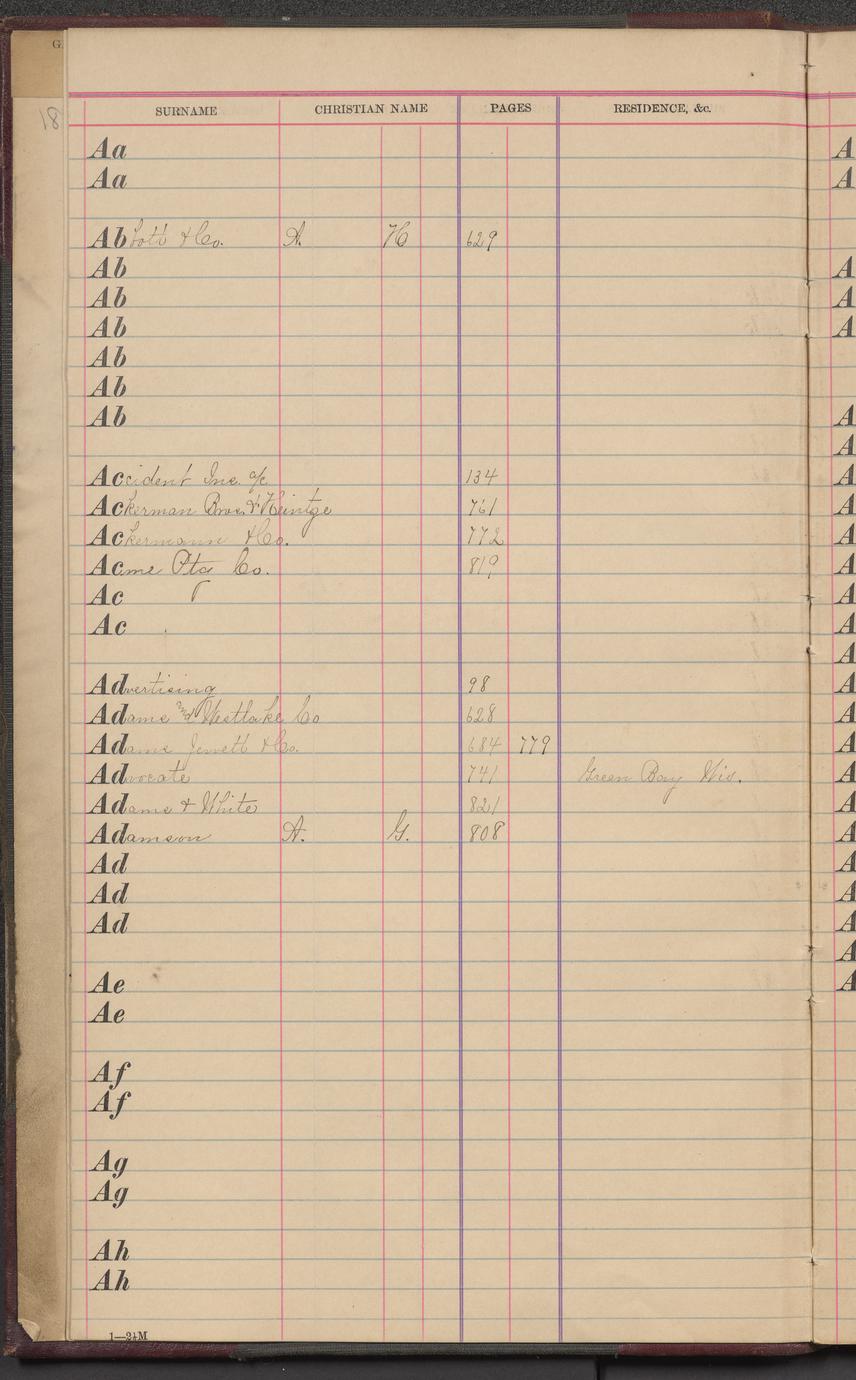 G
81
SURNAME CHRISTIAN NAME PAGES RESIDENCE, &c.
Aa
Aa
Abbott & Co. A. H 629
Ab
Ab
Ab
Ab
Ab
Ab
Accident Ins. a/c 134
Ackerman Bros. & Heintze 761
Ackermann & Co. 772
Acme Ptg Co. 819
Ac
Ac
Advertising 98
Adams and Westlake Co 628
Adams Jewett & Co. 684 779
Advocate 741 Green Bay Wis.
Adams & White 821
Adamson A. G. 808
Ad
Ad
Ad
Ae
Ae
Af
Af
Ag
Ag
Ah
Ah
1—2½M
A
A
A
A
A
A
A
A
A
A
A
A
A
A
A
A
A
A
A
A
A
A
A
A
A